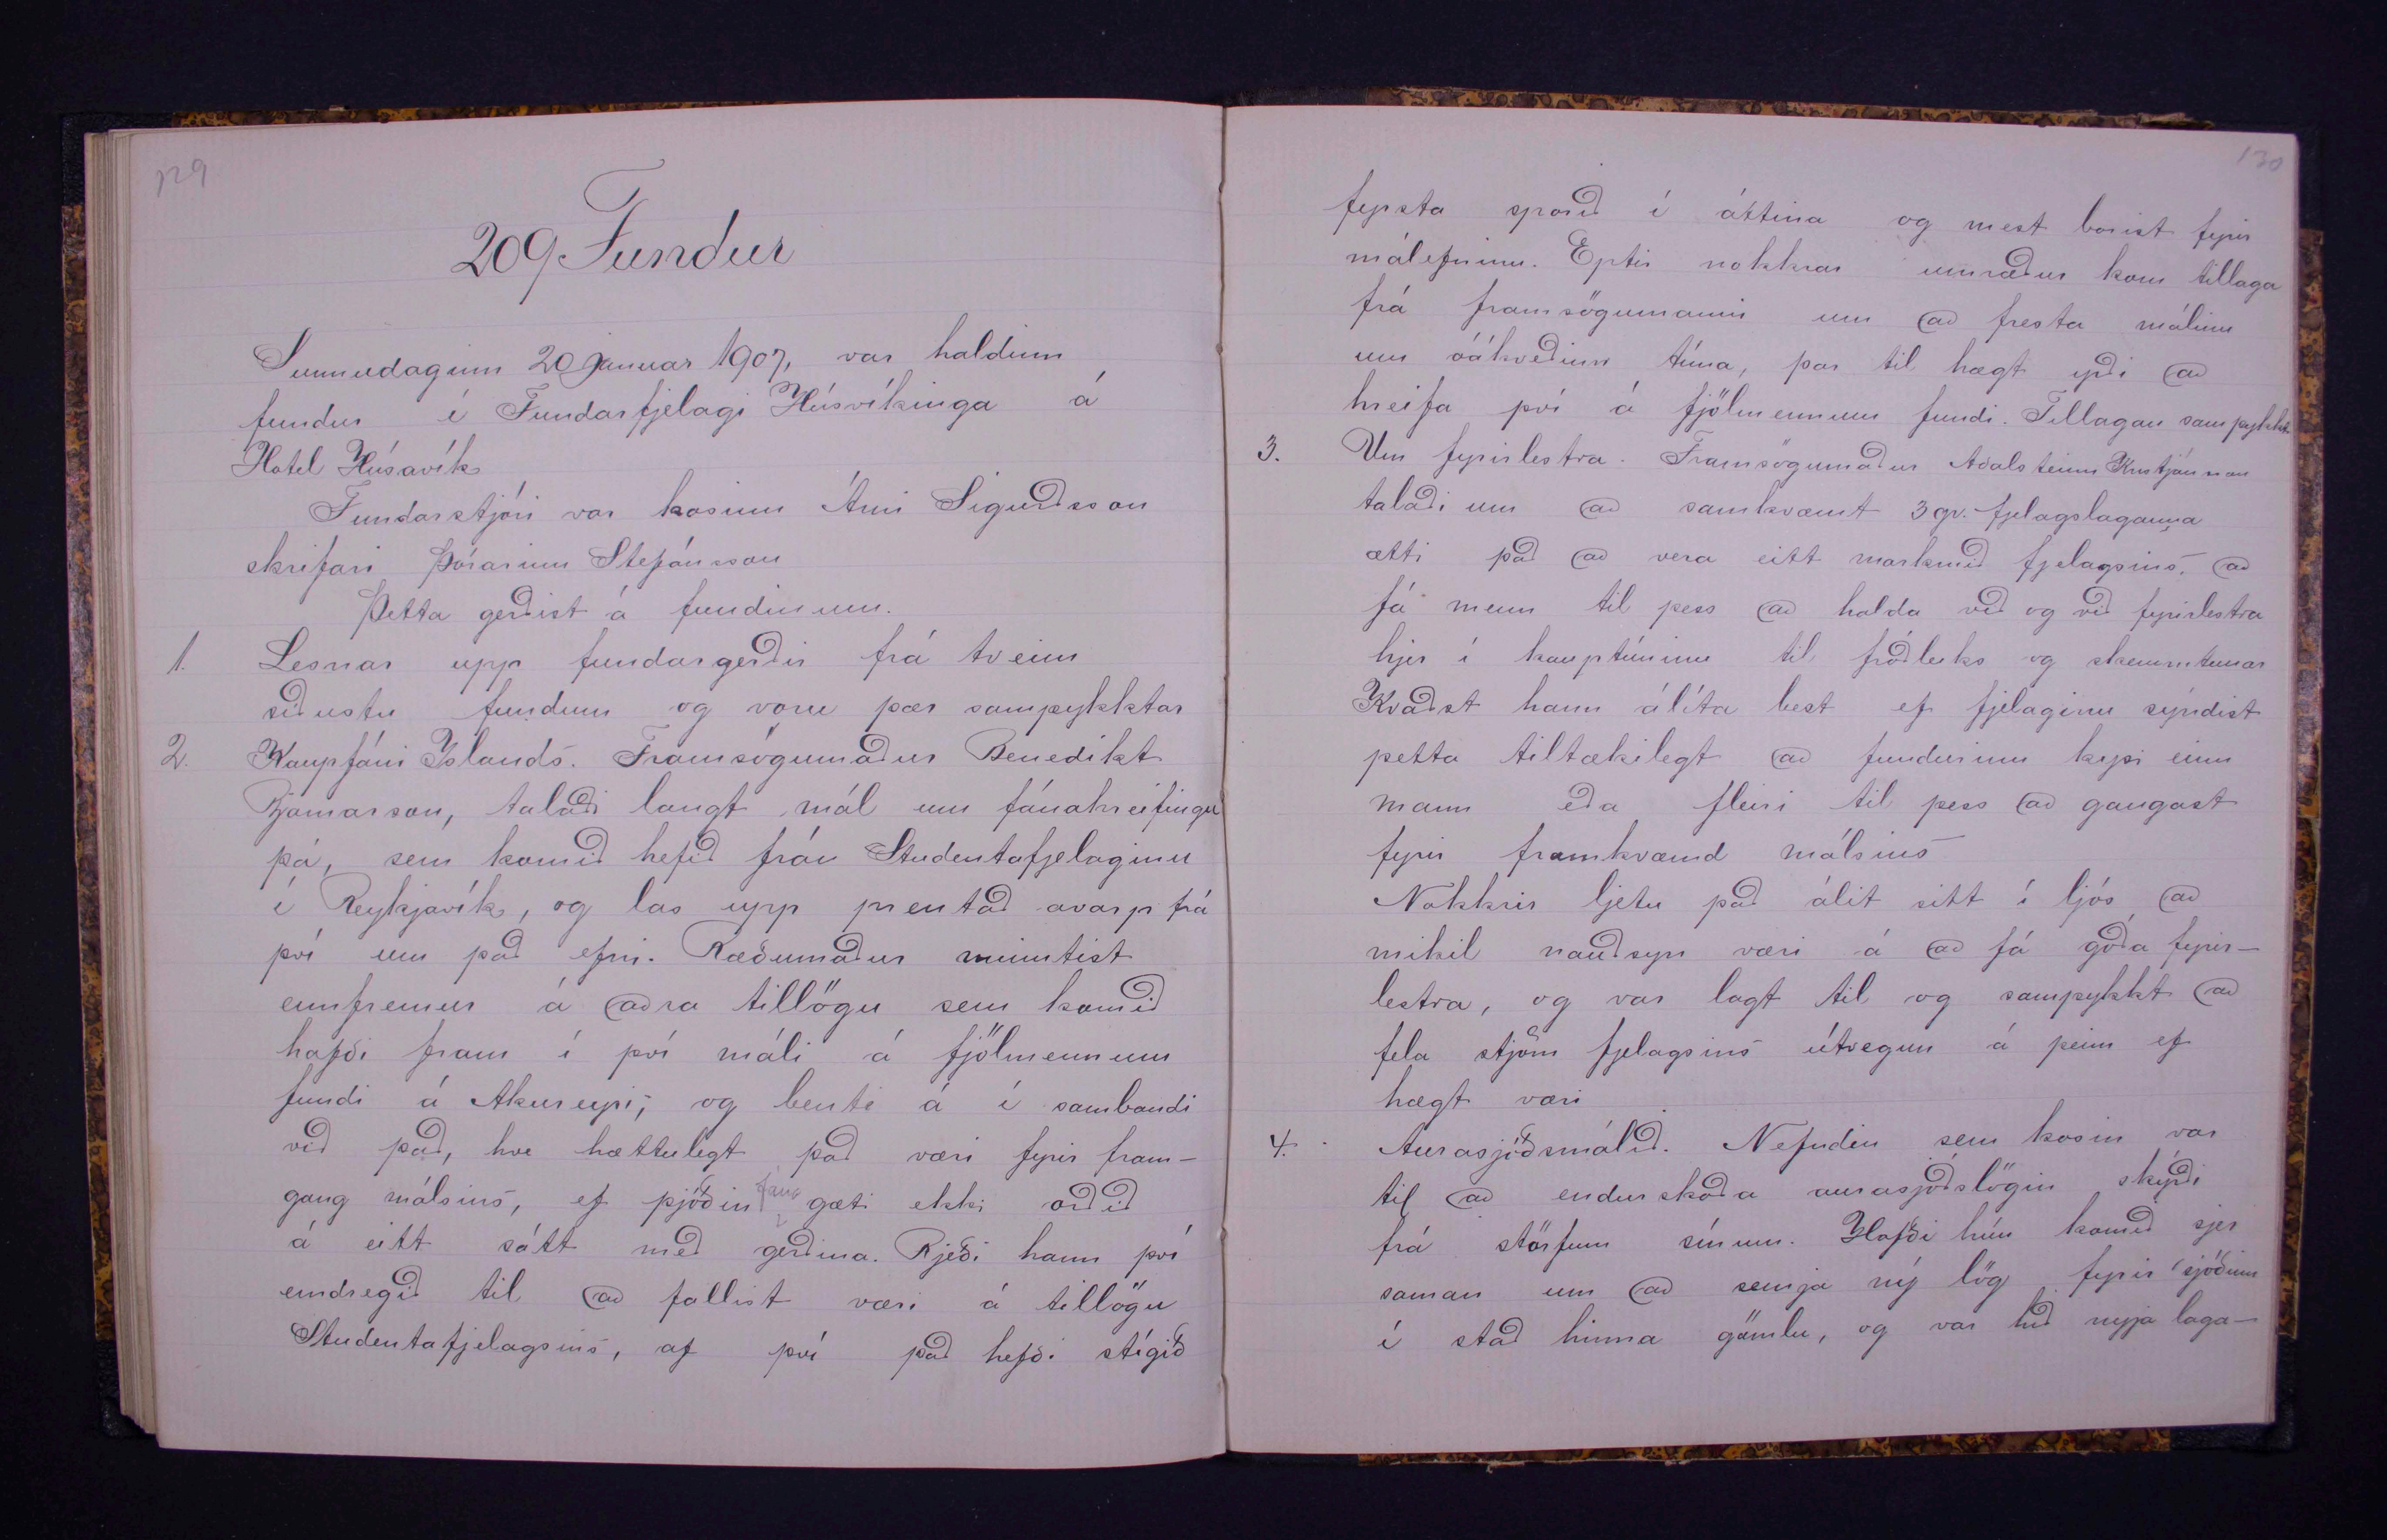 129
209 Fundur
Sunnudaginn 20 Januar 1907, var haldinn
fundur í Fundarfjelagi Húsvíkinga á
Hotel Húsavík
Fundarstjóri var kosinn Árni Sigurðsson
skrifari Þórarinn Stefánsson
Þetta gerðist á fundinum.
1. Lesnar upp fundargerðir frá tveim
síðustu fundum og voru þær samþykktar
2. Kaupfáni Islands. Framsögumaður Benedikt
Bjarnarson, talaði langt mál um fánahreifingu
þá, sem komið hefið frá Studentafjelaginu
í Reykjavík, og las upp prentað avarp frá
því um það efni. Ræðumaður minntist
ennfremur á aðra tillögu sem komið
hafði fram í því máli á fjölmennum
fundi á Akureyri, og benti á í sambandi
við það, hve hættulegt það væri fyrir fram-
gang málsins, ef þjóðin gæti ekki orðið
á eitt sátt með gerðina. Rjeði hann því
eindregið til að fallist væri á tillögu
Studentafjelagsins, af því það hefði stígið
130
fyrsta sporið í áttina og mest barist fyrir
málefninu. Eptir nokkrar umræður kom tillaga
frá framsögumanni um að fresta málinu
um óákveðinn tíma, þar til hægt yrði að
hreifa því á fjölmennum fundi. Tillagan samþykkt
3. Um fyrirlestra. Framsögumaður Aðalsteinn Kristjánsson
talaði um að samkvæmt 3 gr. fjelagslaganna
ætti það að vera eitt markmið fjelagsins, að
fá menn til þess að halda við og við fyrirlestra
hjer í kauptúninu til fróðleiks og skemmtunar
Kvaðst hann álíta best ef fjelaginu sýndist
þetta tiltækilegt að fundurinn kysi einn
mann eða fleiri til þess að gangast
fyrir framkvæmd málsins
Nokkrir ljetu það álit sitt í ljós að
mikil nauðsyn væri á að fá góða fyrir-
lestra, og var lagt til og samþykkt að
fela stjórn fjelagsins útvegun á þeim ef
hægt væri
4. Aurasjóðsmálið. Nefndin sem kosin var
til að endurskoða aurasjóðslögin skýrði
frá störfum sínum. Hafði hún komið sjer
saman um að semja ný lög fyrir sjóðinn
í stað hinna gömlu, og var hið nyja laga-